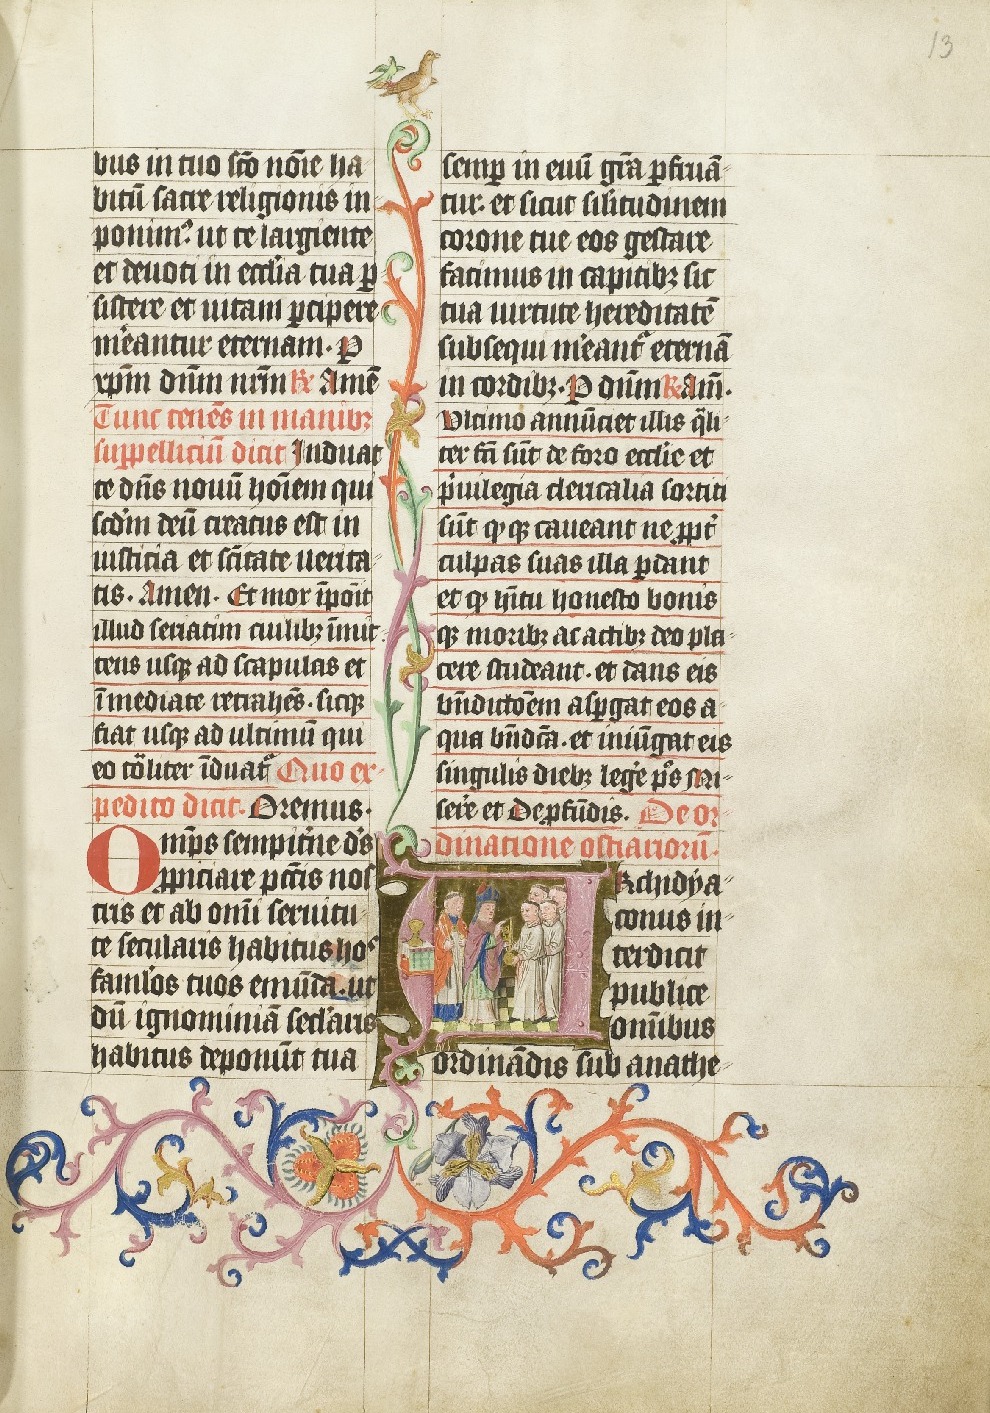 13
bus in tuo sc̄o nōīe ha
bitū sacre religionis in
ponimꝰ. ut te largiente
et deuoti in ecc̄lia tua ꝑ
sistere et uitam ꝑcipere
m̄eantur eternam. P
xp̄m dn̄m nr̄m ℞ Amē
Tunc tenēs in manibꝫ
suꝑpelliciū dicit Induat
te dn̄s nouū hōīem qui
scd̄m deū creatus est in
iusticia et sc̄itate uerita
tis. Amen. Et mox īpoīt
illud seriatim cuilibꝫ īmit
tens usqꝫ ad scapulas et
īmediate retrahēs. sicqꝫ
fiat usqꝫ ad ultimū qui
eo tāliter īduat᷑ Quo ex
pedito dicit. Oremus.
Omp̄s sempit̄ne ds̄
ꝓpiciare pcc̄is nos
tris et ab om̄i seruitu
te secularis habitus hoˢ
famĺos tuos emūda. ut
dū ignominiā secĺaris
habitus deponūt tua
semꝑ in euū gr̄a ꝑfruā
tur. et sicut silitudinem
corone tue eos gestare
facimus in capitibꝫ sic
tua uirtute hereditatē
subsequi m̄eant᷑ eternā
in cordibꝫ. P dn̄m ℞ Am̄.
Ultimo annūciet illis q̄li
ter fc̄i sūt de foro ecc̄lie et
p̄uilegia clericalia sortiti
sūt qꝫ caueant ne ꝓpt̄
culpas suas illa ꝑdant
et ꝙ hītu honesto bonis
qꝫ moribꝫ ac actibꝫ deo pla
cere studeant. et dans eis
bn̄dictōem asꝑgat eos a
qua bn̄dc̄a. et iniūgat eis
singulis diebꝫ leḡe ps̄ Mi
serē et De ꝓfūdis. De or
dinatione ostiariorū.
Archidya
conus in
terdicit
publice
om̄ibus
ordinādis sub anathe